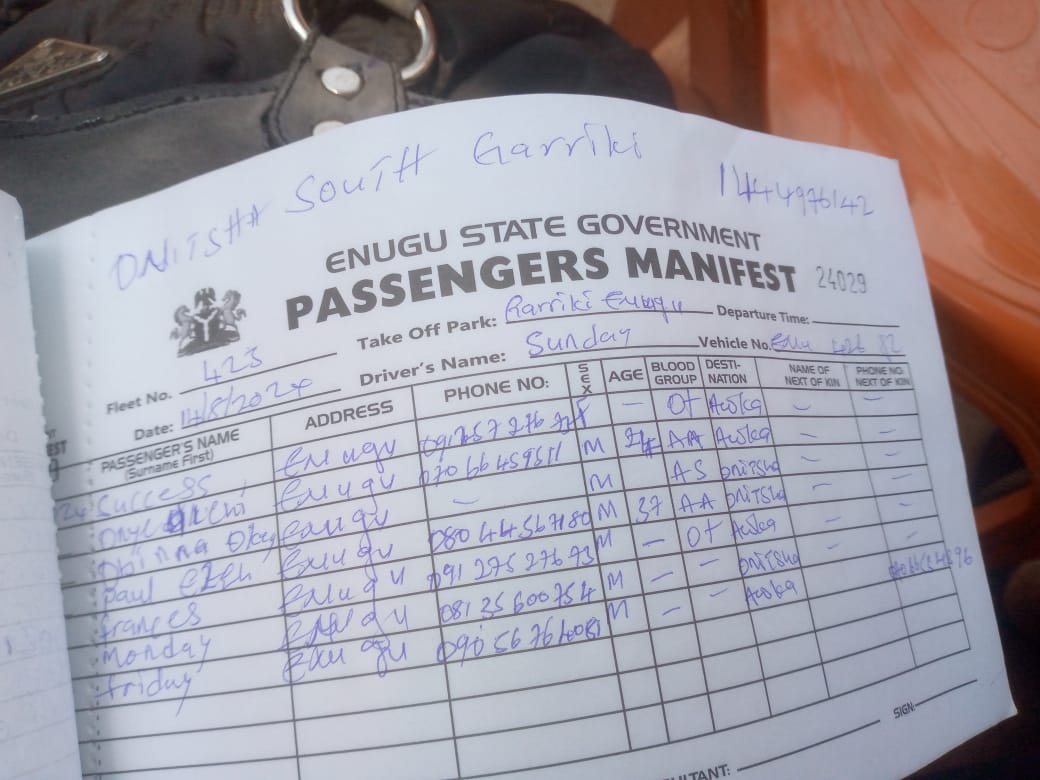 ONITSHA SOUTH Garriki
1444976142
ENUGU STATE GOVERNMENT
PASSENGERS MANIFEST 24029
Fleet No. 423 Take Off Park: Garriki Enugu Departure Time:
Date: 14/8/2024 Driver's Name: Sunday Vehicle No.
PASSENGER'S NAME (Surname First) ADDRESS PHONE NO: SEX AGE BLOOD GROUP DESTI-NATION NAME OF NEXT OF KIN PHONE NO: NEXT OF KIN
Success Enugu — O+ Awka — —
Enugu 07066459511 M AA Awka — —
Obinna Enugu — M AS Onitsha — —
Paul Ezeh Enugu 08044567180 M 37 AA Onitsha — —
frances Enugu 09127527673 M — O+ Awka — —
Monday Enugu 08135600754 M — — Onitsha —
friday Enugu M — — Awka
SIGN: